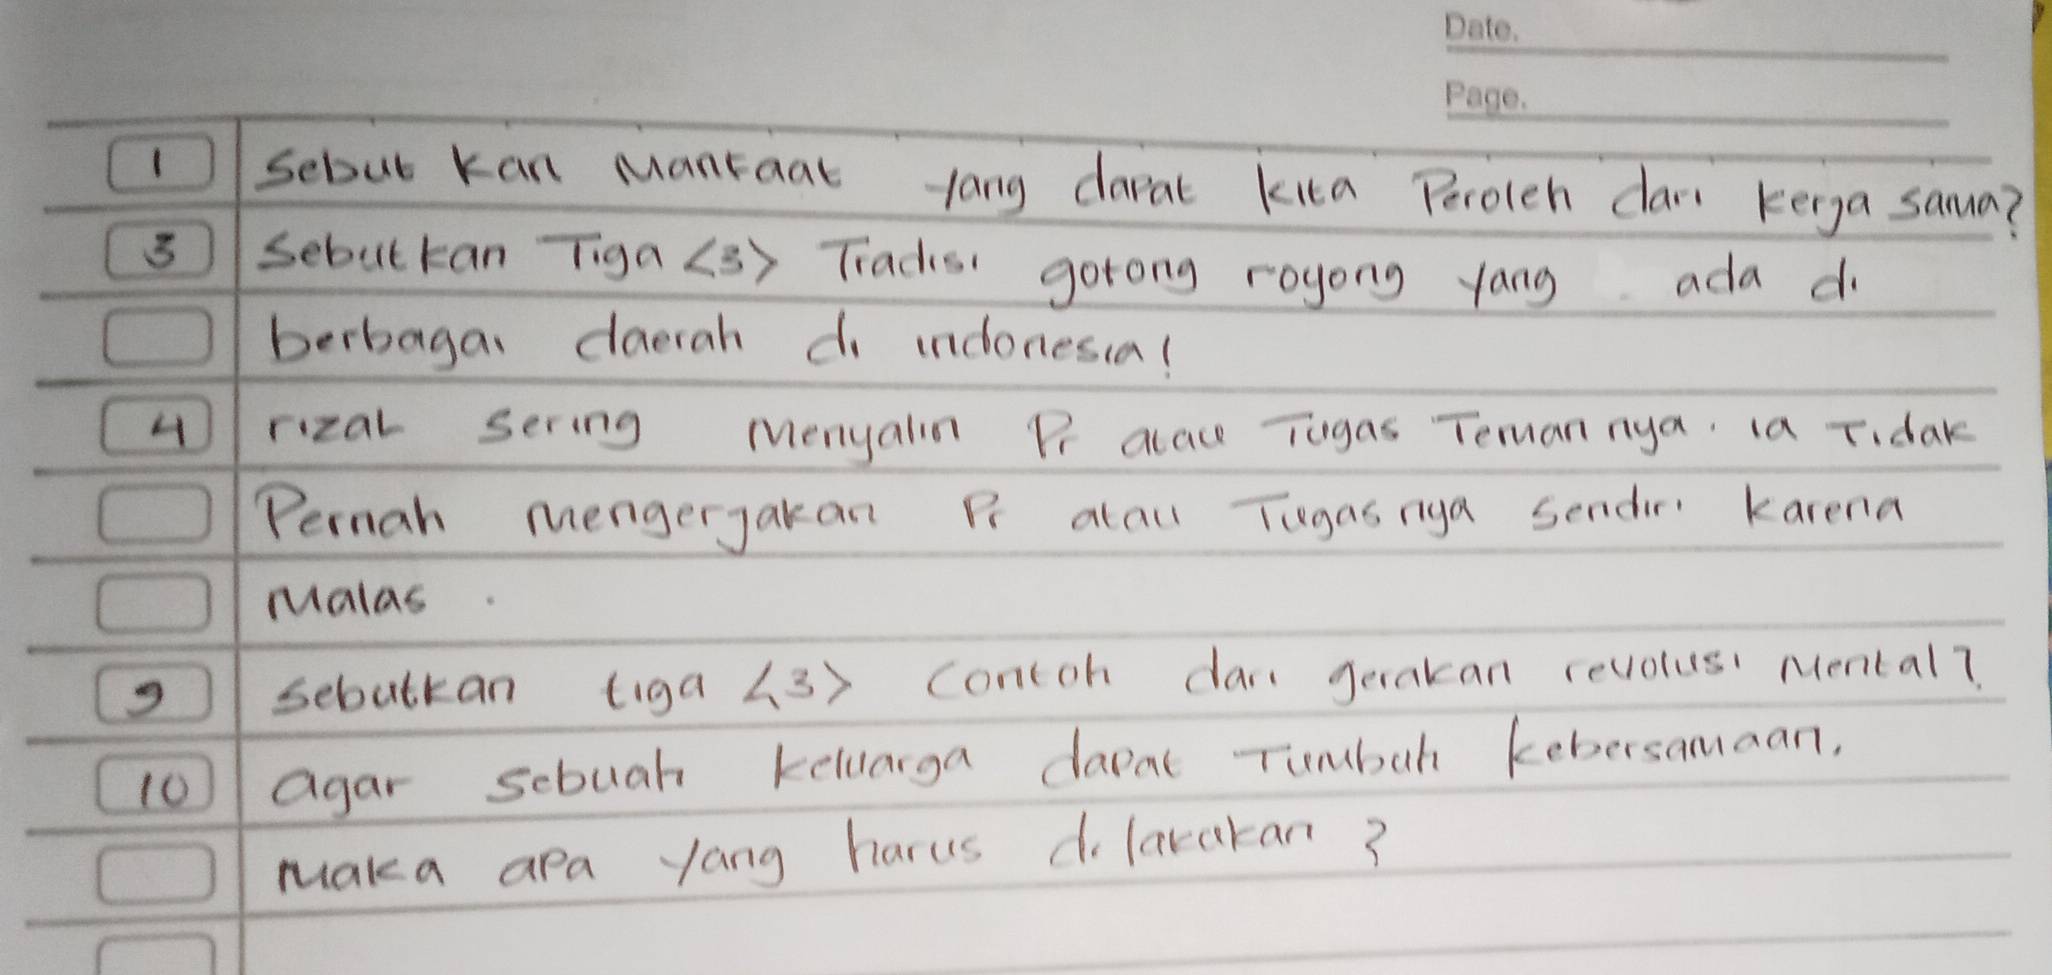 Date.
Page.
1 Sebut kan Manfaat yang dapat kita Peroleh dari kerja sama?
3 Sebutkan Tiga <3> Tradisi gotong royong yang ada di
berbagai daerah di indonesia!
4 rizal sering Menyalin Pr atau Tugas Teman nya. ia Tidak
Pernah mengerjakan Pr atau Tugas nya sendiri karena
Malas.
9 sebutkan tiga <3> contoh dari gerakan revolusi Mental?
10 agar sebuah keluarga dapat Tumbuh kebersamaan,
Maka apa yang harus di lakukan?